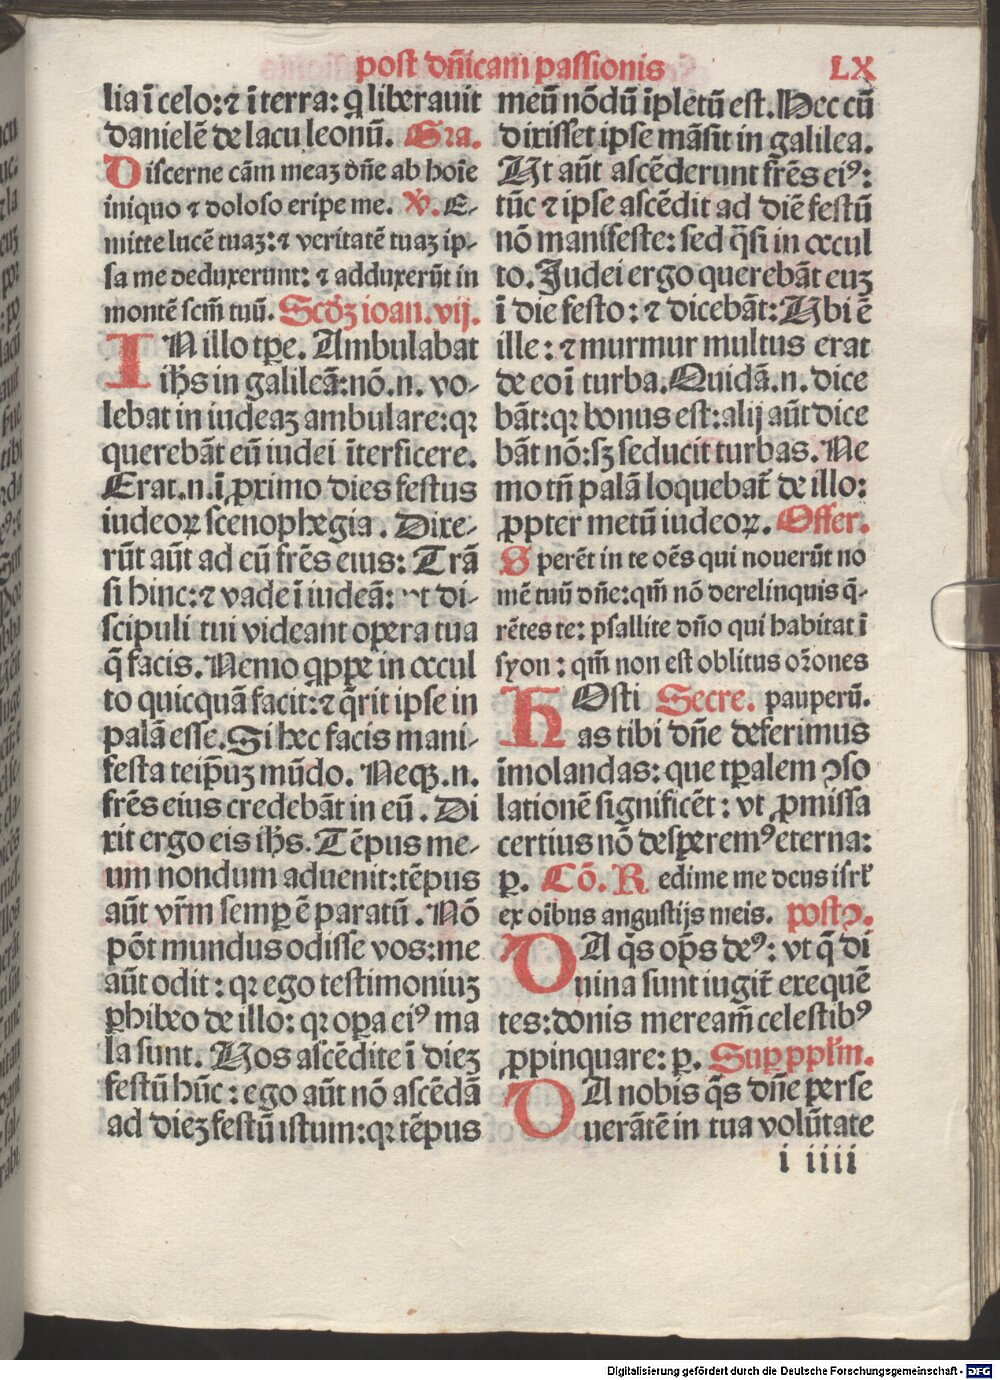 post dn̄icam passionis LX
lia ī celo: ⁊ ī terra: q̄ liberauit
danielē de lacu leonū. Gra.
Discerne cām meaꝫ dn̄e ab hoīe
iniquo ⁊ doloso eripe me. ℣. E-
mitte lucē tuaꝫ: ⁊ veritatē tuaꝫ ip-
sa me deduxerunt: ⁊ adduxerūt in
montē scm̄ tuū. Scd̄ꝫ ioan. vij.
IN illo tp̄e. Ambulabat
ih̄s in galileā: nō .n. vo-
lebat in iudeaꝫ ambulare: qꝛ
querebāt eū iudei īterficere.
Erat .n. ī ꝓximo dies festus
iudeoꝝ scenophegia. Dixe-
rūt aūt ad eū fr̄es eius: Trā
si hinc: ⁊ vade ī iudeā: vt di-
scipuli tui videant opera tua
q̄ facis. Nemo q̄ppe in occul
to quicquā facit: ⁊ q̄rit ipse in
palā esse. Si hec facis mani-
festa teip̄uꝫ mūdo. Neqꝫ .n.
fr̄es eius credebāt in eū. Di
xit ergo eis ih̄s. Tēpus me-
um nondum aduenit: tēpus
aūt vr̄m semꝑ ē paratū. Nō
pōt mundus odisse vos: me
aūt odit: qꝛ ego testimoniuꝫ
ꝑhibeo de illo: qꝛ oꝑa eiꝰ ma
la sunt. Uos ascēdite ī dieꝫ
festū hūc: ego aūt nō ascēdā
ad dieꝫ festū istum: qꝛ tēpus
meū nōdū īpletū est. Hec cū
dixisset ipse māsit in galilea.
Ut aūt ascēderunt fr̄es eiꝰ:
tūc ⁊ ipse ascēdit ad diē festū
nō manifeste: sed q̄si in occul
to. Judei ergo querebāt euꝫ
ī die festo: ⁊ dicebāt: Ubi ē
ille: ⁊ murmur multus erat
de eo ī turba. Quidā .n. dice
bāt: qꝛ bonus est: alij aūt dice
bāt nō: sꝫ seducit turbas. Ne
mo tn̄ palā loquebat̄ de illo:
ꝓpter metū iudeoꝝ. Offer.
Sperēt in te oēs qui nouerūt no
mē tuū dn̄e: qm̄ nō derelinquis q̄-
rētes te: psallite dn̄o qui habitat ī
syon: qm̄ non est oblitus oꝛones
HOsti Secre. pauperū.
as tibi dn̄e deferimus
īmolandas: que tp̄alem ꝯso
lationē significēt: vt ꝓmissa
certius nō desperemꝰ eterna:
ꝑ. Cō. Redime me deus isrl̄
ex oibus angustijs meis. postꝯ.
DA q̄s op̄s deꝰ: vt q̄ di
uina sunt iugit̄ exequē
tes: donis meream̄ celestibꝰ
ꝓpinquare: ꝑ. Suꝑ ppl̄m.
DA nobis q̄s dn̄e perse
uerātē in tua volūtate
i iiii
Digitalisierung gefördert durch die Deutsche Forschungsgemeinschaft - DFG